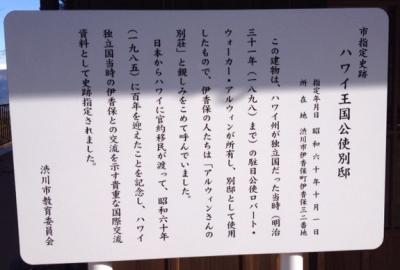 市指定史跡
ハワイ王国公使別邸
指定年月日 昭和六十年十月一日
所在地 渋川市伊香保町伊香保三二番地
この建物は、ハワイ州が独立国だった当時(明治
三十一年(一八九八)まで)の駐日公使ロバート・
ウォーカー・アルウィンが所有し、別邸として使用
したもので、伊香保の人たちは「アルウィンさんの
別荘」と親しみをこめて呼んでいました。
日本からハワイに官約移民が渡って、昭和六十年
(一九八五)に百年を迎えたことを記念し、ハワイ
独立国当時の伊香保との交流を示す貴重な国際交流
資料として史跡指定されました。
渋川市教育委員会